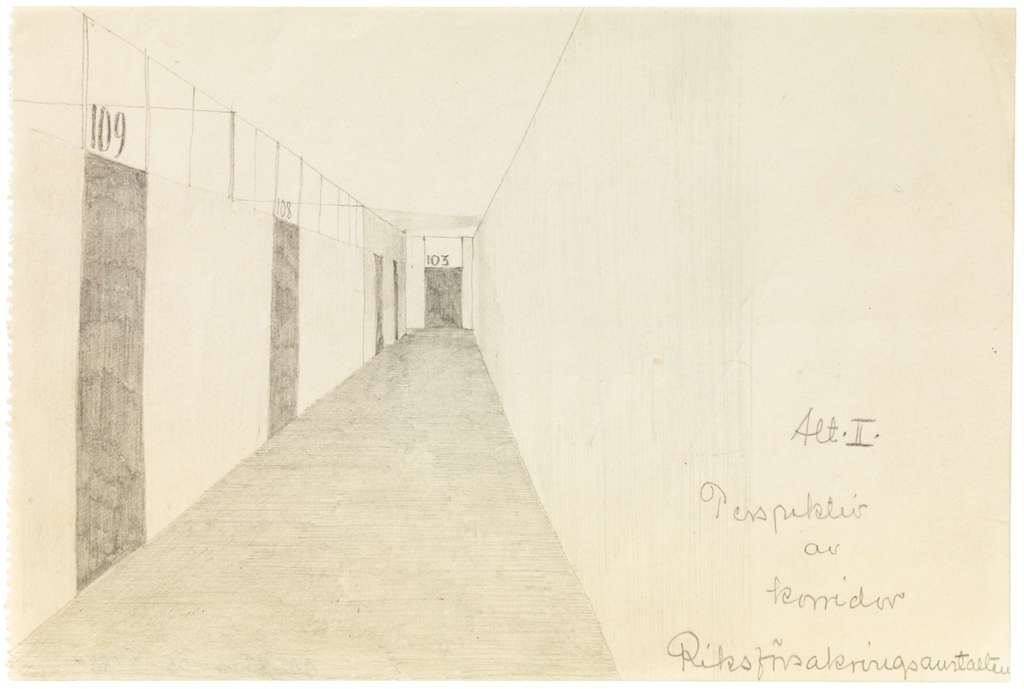 109
108
103
Alt. II.
Perspektiv
av
korridor
Riksförsäkringsanstalten